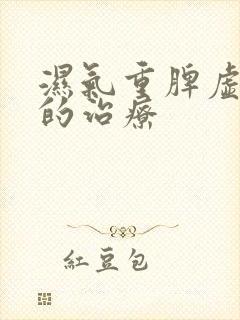 濕氣重脾虛
的治療
紅豆包